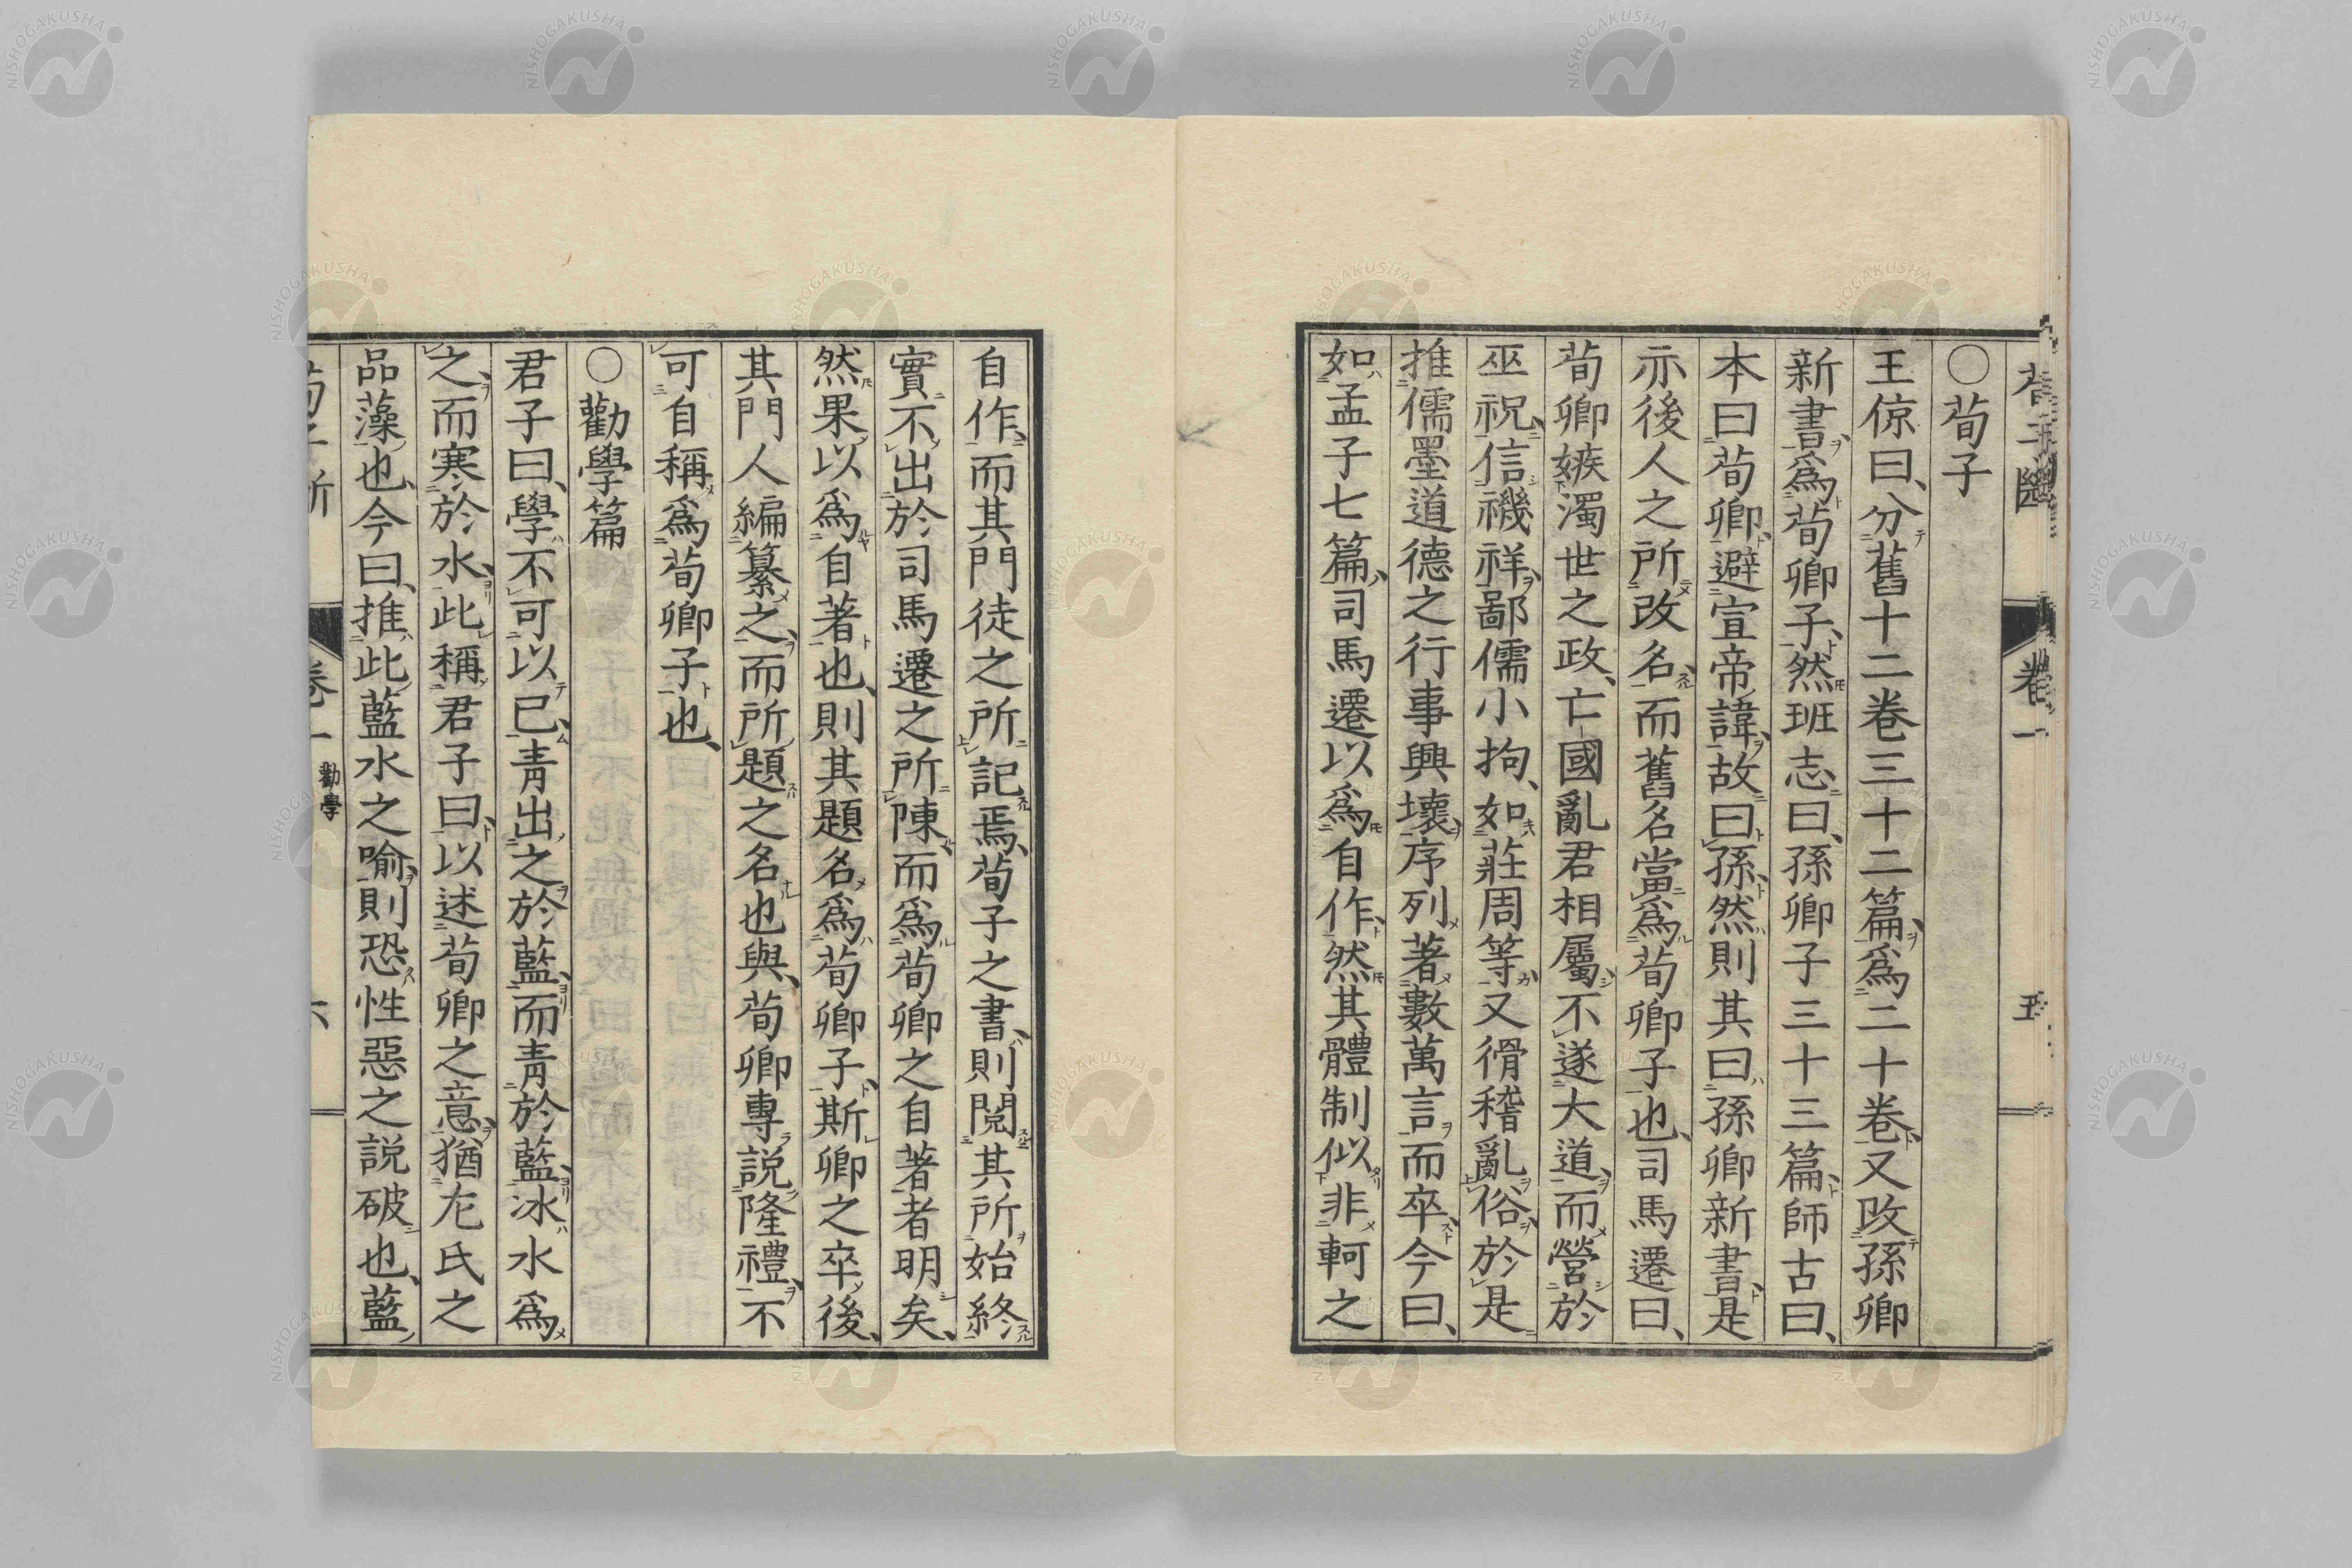 〇荀子
王倞曰、分舊十二卷三十二篇、爲二十卷、又改孫卿
新書、爲荀卿子、然班志曰、孫卿子三十三篇、師古曰、
本曰荀卿、避宣帝諱、故曰孫、然則其曰孫卿新書、是
亦後人之所改名、而舊名當爲荀卿子也、司馬遷曰、
荀卿嫉濁世之政、亡國亂君相屬、不遂大道、而營於
巫祝、信禨祥、鄙儒小拘、如莊周等、又滑稽亂俗、於是
推儒墨道德之行事興壞、序列著數萬言而卒、今曰、
如孟子七篇、司馬遷以爲自作、然其體制似非軻之
自作、而其門徒之所記焉、荀子之書、則閲其所始終
實不出於司馬遷之所陳、而爲荀卿之自著者明矣、
然果以爲自著也、則其題名爲荀卿子、斯卿之卒後、
其門人編纂之、而所題之名也與、荀卿專説隆禮、不
可自稱爲荀卿子也、
〇勸學篇
君子曰、學不可以已、青出之於藍、而青於藍、冰水爲
之、而寒於水、此稱君子曰、以述荀卿之意、猶左氏之
品藻也、今曰、推此藍水之喻、則恐性惡之説破也、藍
卷一
勸學
六
卷一
五